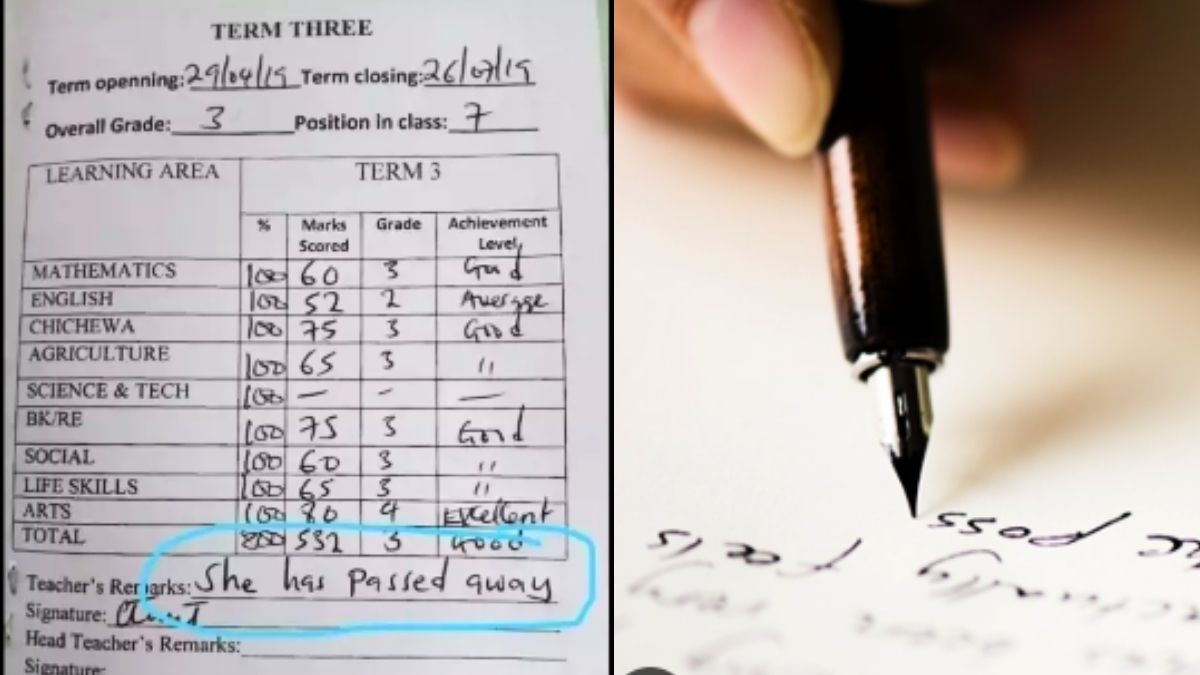 TERM THREE
Term openning: 29/04/19 Term closing: 26/07/19
Overall Grade: 3 Position in class: 7
LEARNING AREA TERM 3
% Marks Scored Grade Achievement Level
MATHEMATICS 100 60 3 Good
ENGLISH 100 52 2 Average
CHICHEWA 100 75 3 Good
AGRICULTURE 100 65 3 "
SCIENCE & TECH 100 — - —
BK/RE 100 75 3 Good
SOCIAL 100 60 3 "
LIFE SKILLS 100 65 3 "
ARTS 100 80 4 Excellent
TOTAL 800 532 3 Good
Teacher's Remarks: She has passed away
Signature:
Head Teacher's Remarks:
Signature:
poss
feels